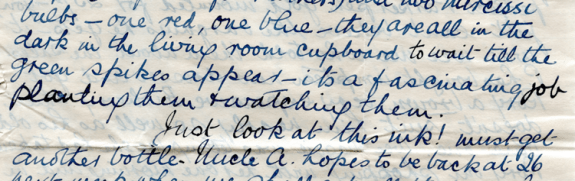 just two narcissi
bulbs – one red, one blue – they are all in the
dark in the living room cupboard to wait till the
green spikes appear – its a fascinating job
planting them & watching them.
Just look at this ink! must get
another bottle. Uncle A. hopes to be back at 26
next week when we shall